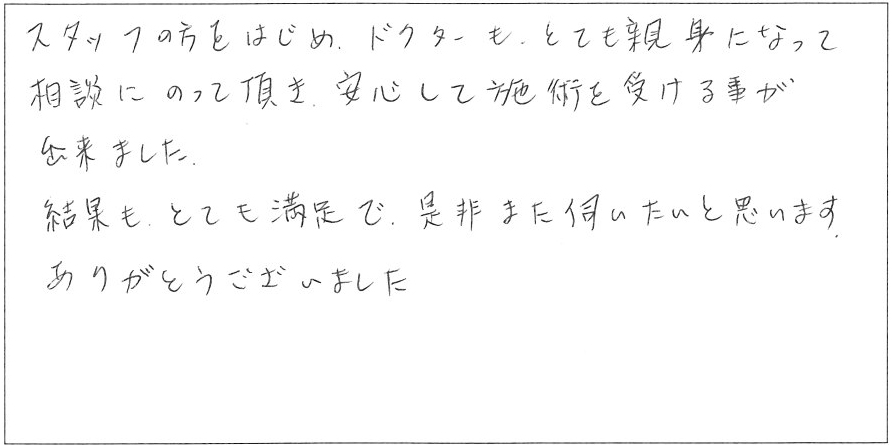 スタッフの方をはじめ、ドクターも、とても親身になって
相談にのって頂き、安心して施術を受ける事が
出来ました。
結果も、とても満足で、是非また伺いたいと思います。
ありがとうございました